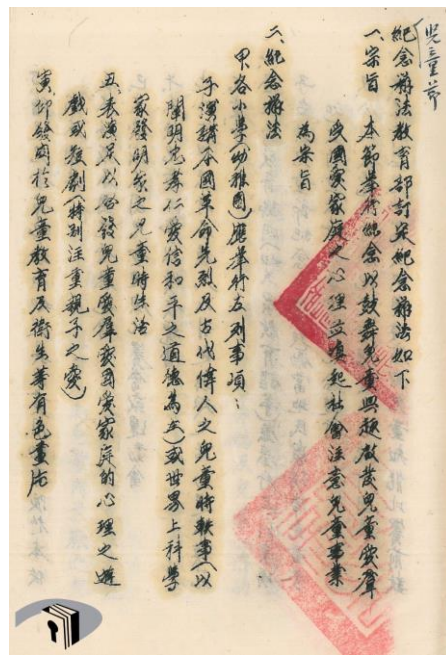 兒童節
紀念辦法教育部訂定紀念辦法如下
一、宗旨 本節舉行紀念以鼓舞兒童興趣啟發兒童愛羣
愛國愛家庭之心理並喚起社會注意兒童事業
為宗旨
二、紀念辦法
甲各小學(幼稚園)應舉行左列事項:
子演講本國革命先烈及古代偉人之兒童時軼事(以
闡明忠孝仁愛信和平之道德為主)或世界上科學
家發明家之兒童時生活
丑表演足以啟發兒童愛羣愛國愛家庭的心理之遊
戲或戲劇(特別注重親子之愛)
寅印發關於兒童教育及衛生等有色畫片